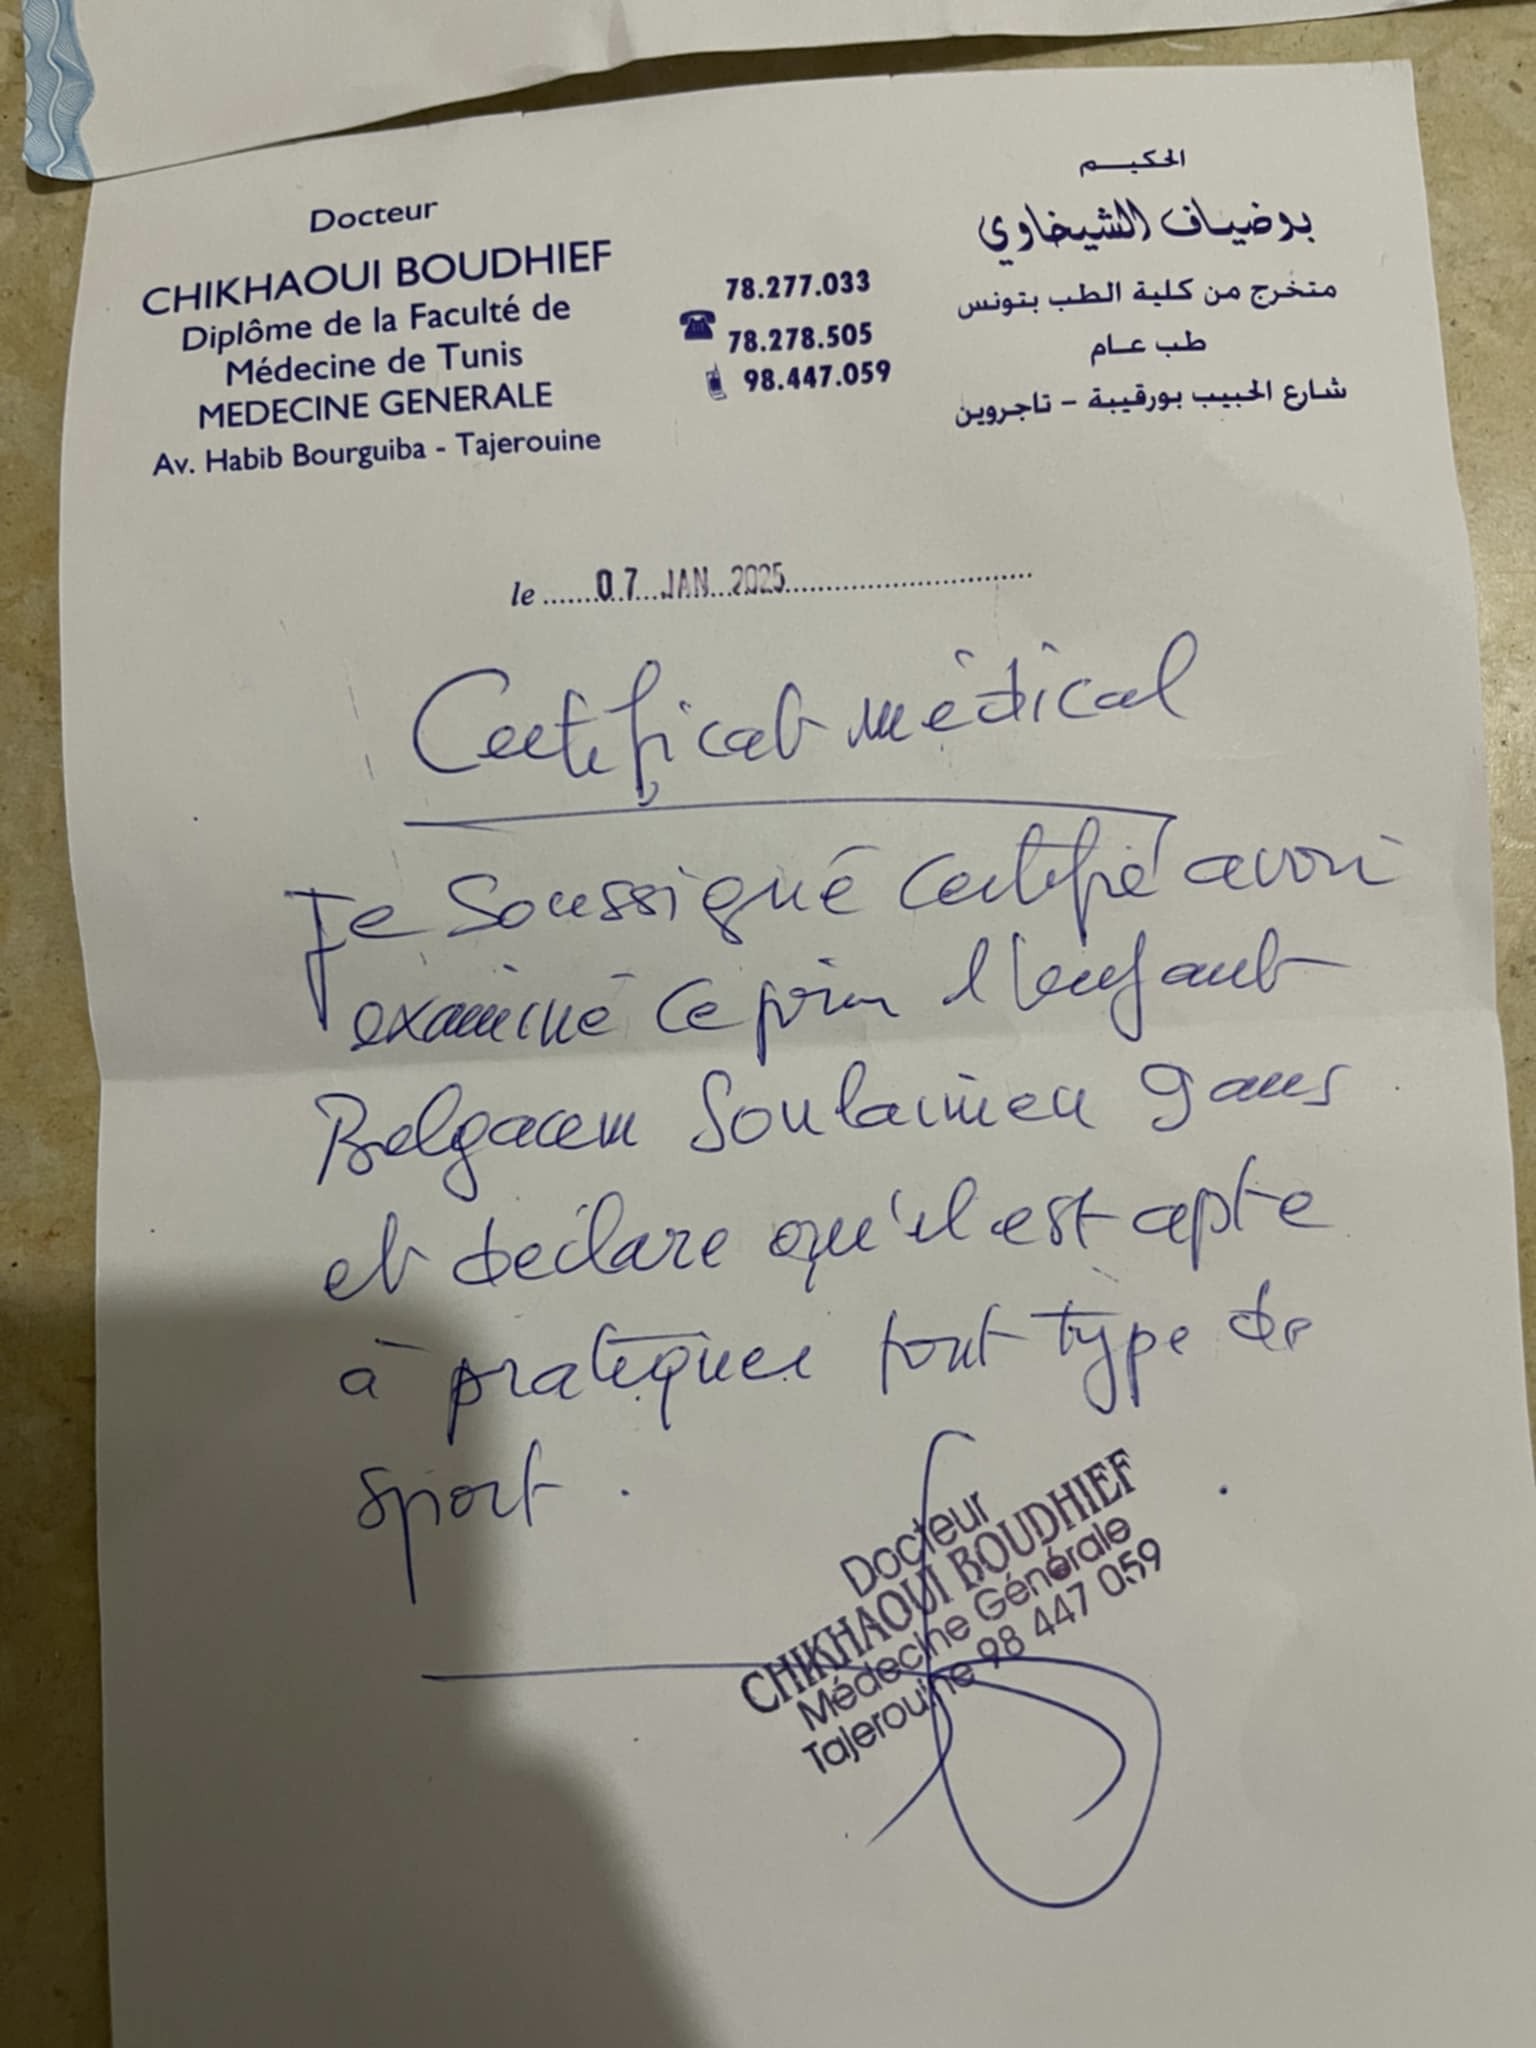 Docteur
CHIKHAOUI BOUDHIEF
Diplôme de la Faculté de
Médecine de Tunis
MEDECINE GENERALE
Av. Habib Bourguiba - Tajerouine
78.277.033
78.278.505
98.447.059
الحكيم
بوضياف الشيخاوي
متخرج من كلية الطب بتونس
طب عام
شارع الحبيب بورقيبة - تاجروين
le ...... 07 JAN 2025 ..............................
Certificat médical
Je soussigné certifié avoir
examiné ce jour l'enfant
Belgacem Soulaimen 9 ans
et déclare qu'il est apte
à pratiquer tout type de
sport .
Docteur
CHIKHAOUI BOUDHIEF
Médecine Générale
Tajerouine 98 447 059